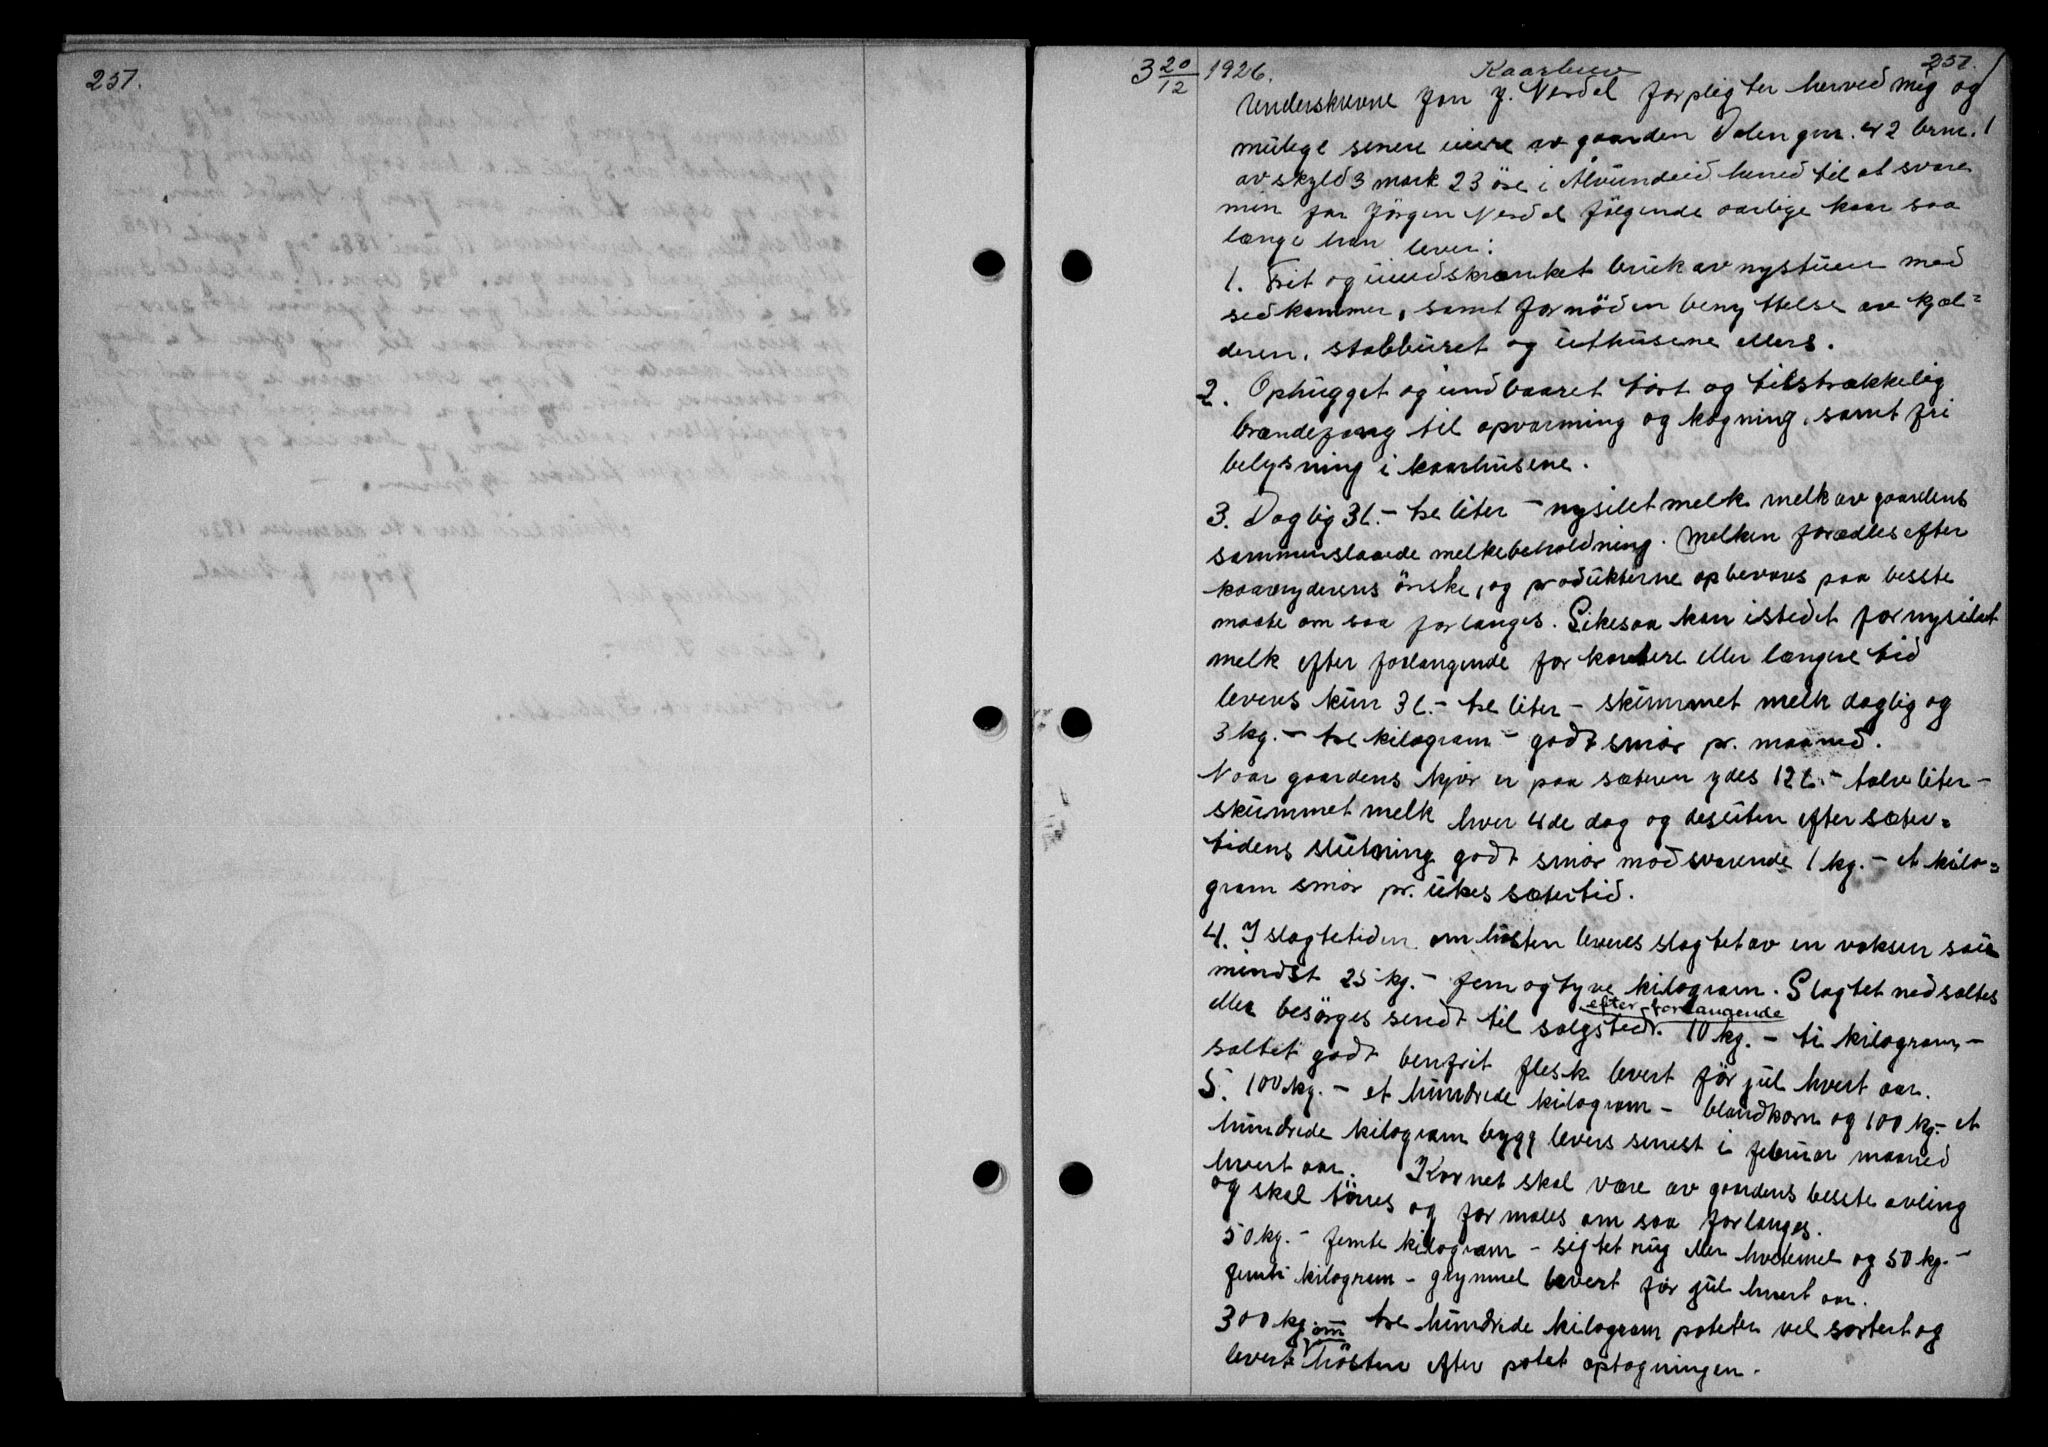 257.
3 20/12 1926. Kaarbrev 257.
Underskrevne Jon J. Nerdal forpligter herved mig og
mulige senere eiere av gaarden Dalen gnr. 42 brnr. 1
av skyld 3 mark 23 öre i Ålvundeid herred til at svare
min far Jörgen Nerdal fölgende aarlige kaar saa
længe han lever:
1. Frit og uindskrænket bruk av nystuen med
sedkammer, samt fornöden benyttelse av kjæl=
deren, stabburet og uthusene ellers.
2. Ophugget og indbaaret tört og tilstrækkelig
brændefang til opvarming og kogning, samt fri
belysning i kaarhusene.
3. Daglig 3 l. - tre liter - nysilet melk melk av gaardens
sammenslaaede melkebeholdning. Melken forædles efter
kaarnyderens önske, og produkterne opbevares paa besste
maate om saa forlanges. Likesaa kan istedet for nysilet
melk efter forlangende for kortere eller længere tid
leveres kun 3 l. - tre liter - skummet melk daglig og
3 kg. - tre kilogram - godt smör pr. maaned.
Naar gaardens kjör er paa sæteren ydes 12 l. - tolv liter -
skummet melk hver 4de dag og desuten efter sæter=
tidens slutning godt smör modsvarende 1 kg. - et kilo=
gram smör pr. ukes sætertid.
4. I slagtetiden om hösten leveres slagtet av en voksen sau
mindst 25 kg. - fem og tyve kilogram. Slagtet nedsaltes
efter forlangende
eller besörges sendt til salgsted. 10 kg. - ti kilogram -
saltet godt benfrit flesk levert för jul hvert aar.
5. 100 kg. - et hundrede kilogram - blandkorn og 100 kg. - et
hundrede kilogram bygg levers senest i februar maaned
hvert aar. Kornet skal være av gaardens besste avling
og skal törres og formales om saa forlanges.
50 kg. - femti kilogram - sigtet rug eller hvetemel og 50 kg. -
femti kilogram - grynmel levert för jul hvert aar.
300 kg. - tre hundrede kilogram poteter vel sortert og
om
levert hösten efter potet optagningen.